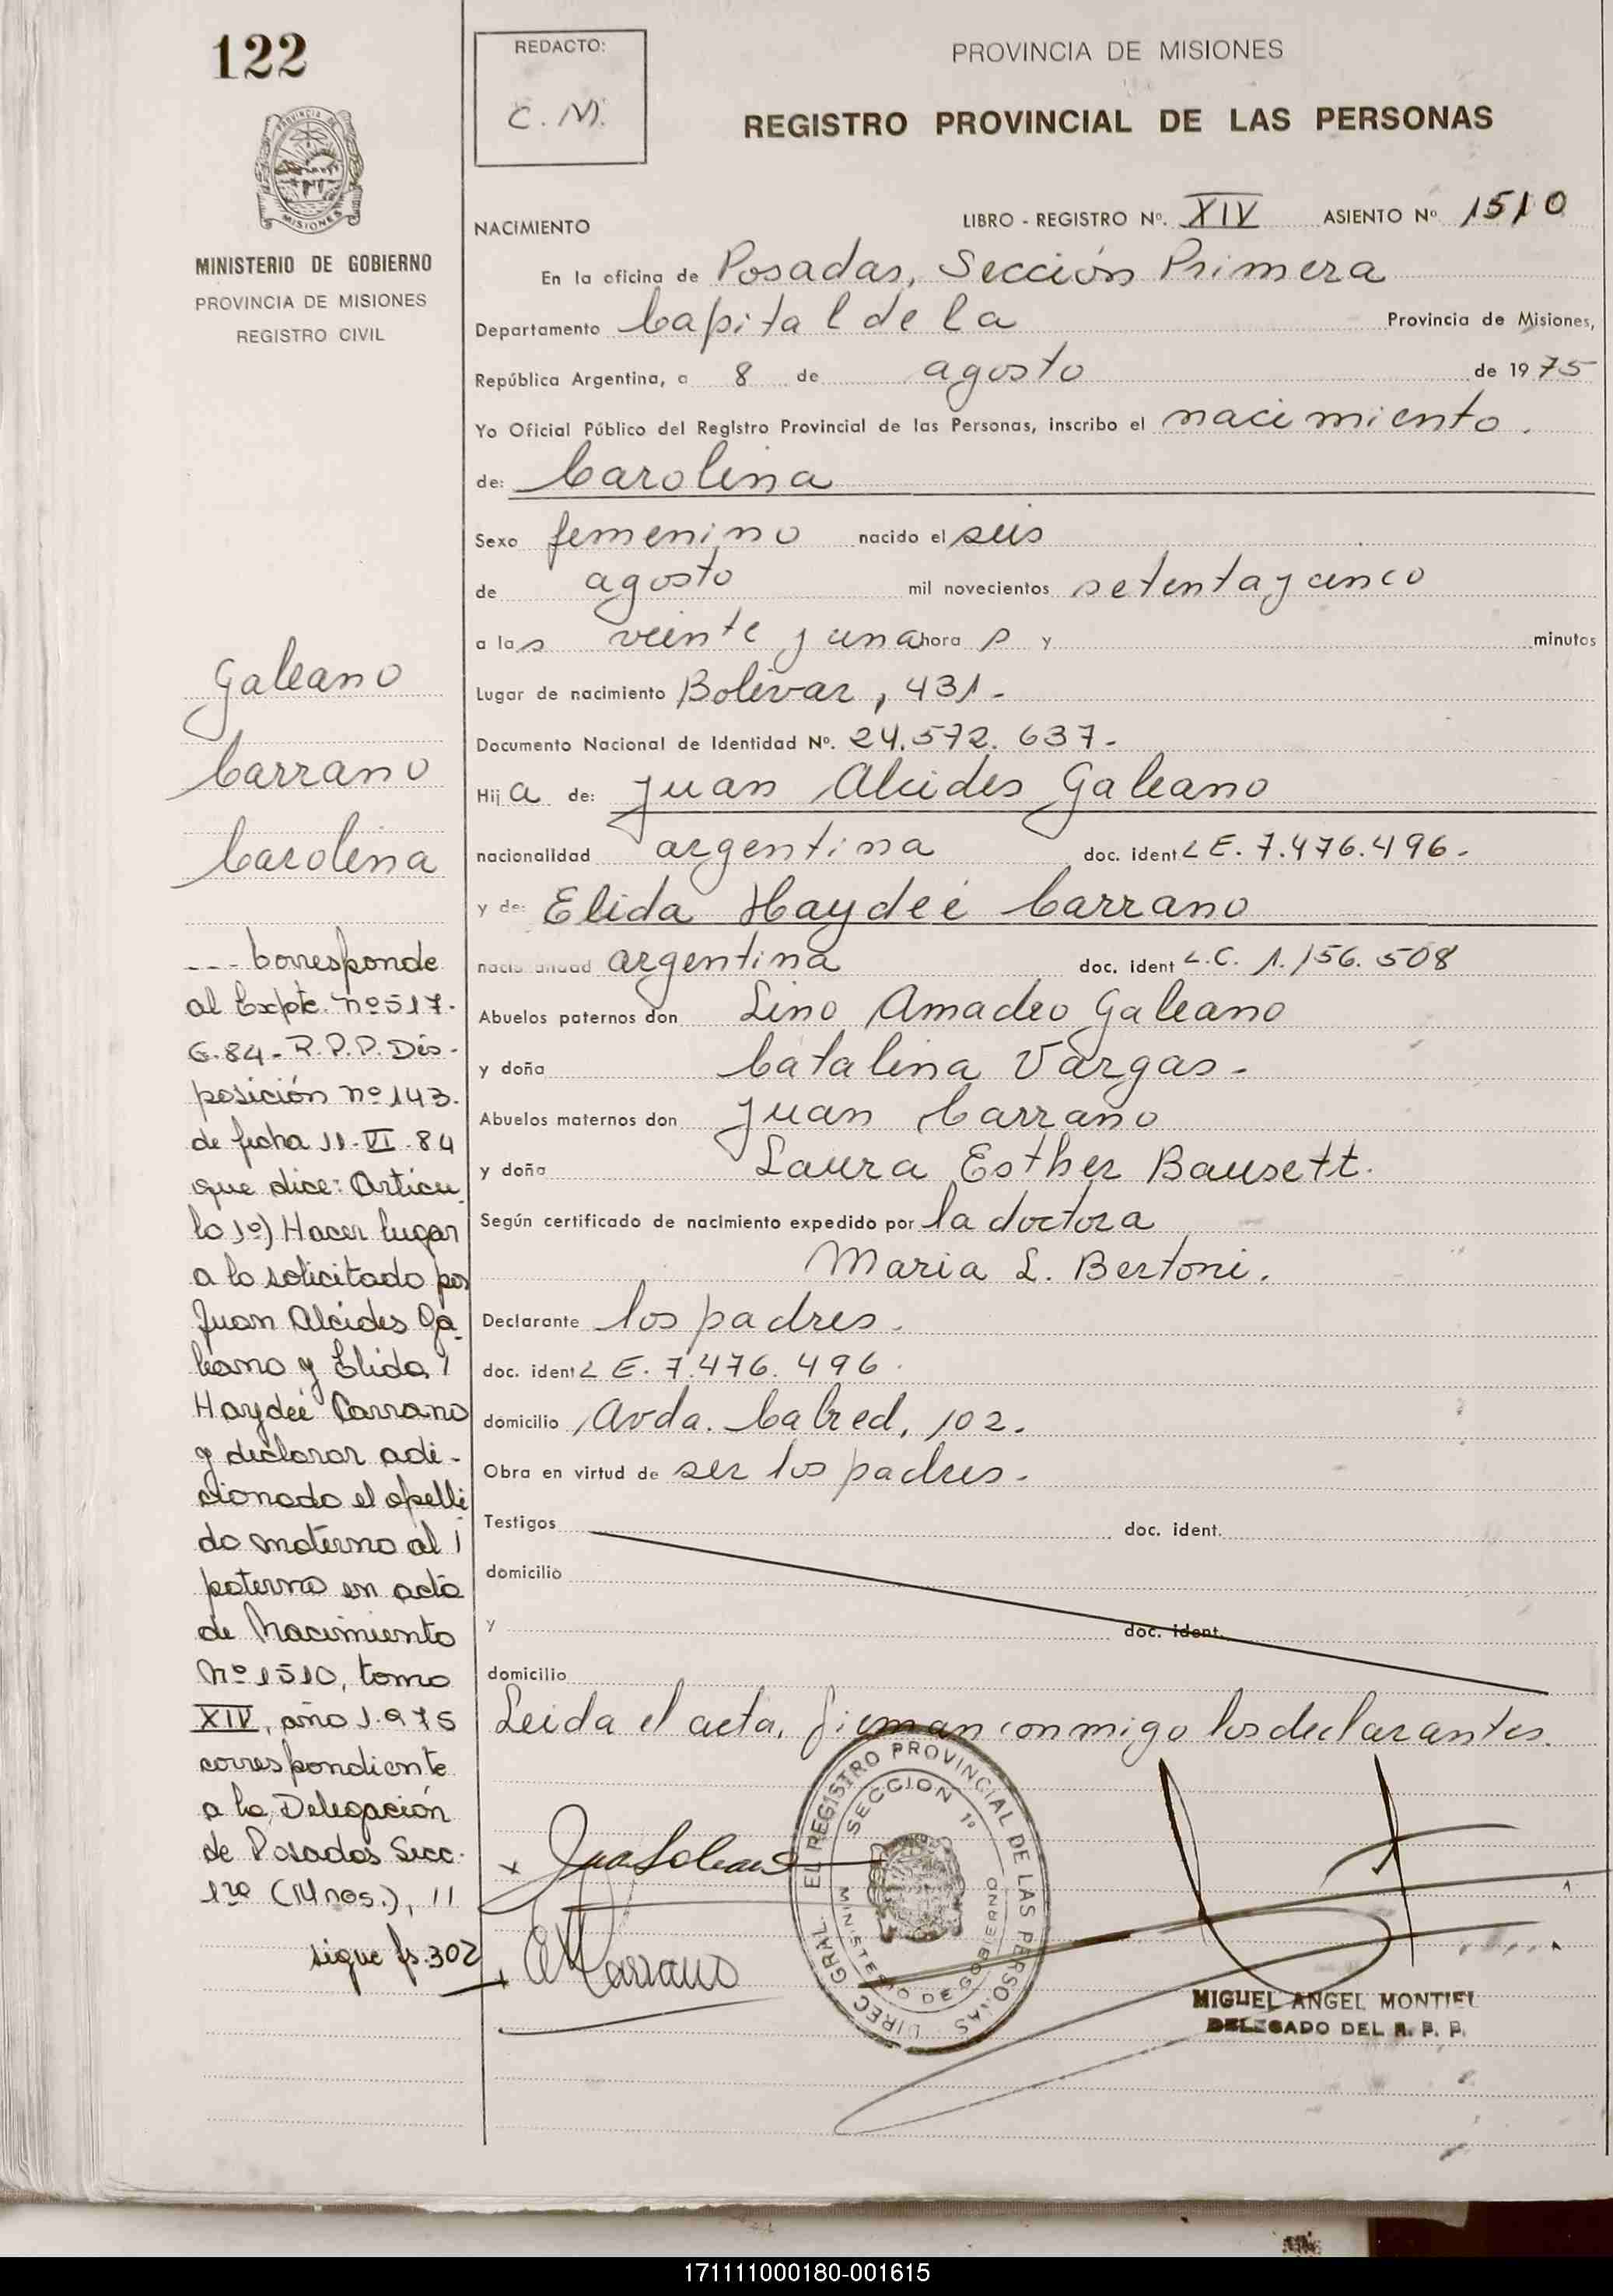 122
REDACTO:
C. M.
PROVINCIA DE MISIONES
REGISTRO PROVINCIAL DE LAS PERSONAS
PROVINCIA DE
MISIONES
MINISTERIO DE GOBIERNO
PROVINCIA DE MISIONES
REGISTRO CIVIL
NACIMIENTO
LIBRO - REGISTRO Nº. XIV ASIENTO Nº 1510
En la oficina de Posadas, Sección Primera
Departamento Capital de la Provincia de Misiones,
República Argentina, a 8 de agosto de 1975
Yo Oficial Público del Registro Provincial de las Personas, inscribo el nacimiento.
de: Carolina
Sexo femenino nacido el seis
de agosto mil novecientos setenta y cinco
a las veinte y una hora s y minutos
Lugar de nacimiento Bolivar, 431-
Documento Nacional de Identidad Nº. 24.572.637-
Hija de: Juan Alcides Galeano
nacionalidad argentina doc. ident L E. 7.476.496.
y de: Elida Haydeé Carrano
nacionalidad argentina doc. ident L.C. 1.156.508
Abuelos paternos don Lino Amadeo Galeano
y doña Catalina Vargas-
Abuelos maternos don Juan Carrano
y doña Laura Esther Bausett.
Según certificado de nacimiento expedido por la doctora
Maria L. Bertoni.
Declarante los padres.
doc. ident L E. 7.476.496.
domicilio Avda. Cabred, 102.
Obra en virtud de ser los padres-
Testigos doc. ident.
domicilio
y doc. ident.
domicilio
Leida el acta, firman conmigo los declarantes.
Galeano
Carrano
Carolina
--- Corresponde
al Expte. nº 517-
G-84- R.P.P. Dis-
posición nº 143-
de fecha 11-VI-84
que dice: Artícu
lo 1º) Hacer lugar
a lo solicitado por
Juan Alcides Ga-
leano y Elida
Haydeé Carrano
y declarar adi-
cionado el apelli
do materno al
paterno en acta
de Nacimiento
Nº 1510, tomo
XIV, año 1.975
correspondiente
a la Delegación
de Posadas Secc.
1ra (Mnes.), 11
sigue fs. 302
DIREC GRAL. EL REGISTRO PROVINCIAL DE LAS PERSONAS
SECCION 1º
MINISTERIO DE GOBIERNO
MIGUEL ANGEL MONTIEL
DELEGADO DEL R. P. P.
171111000180-001615